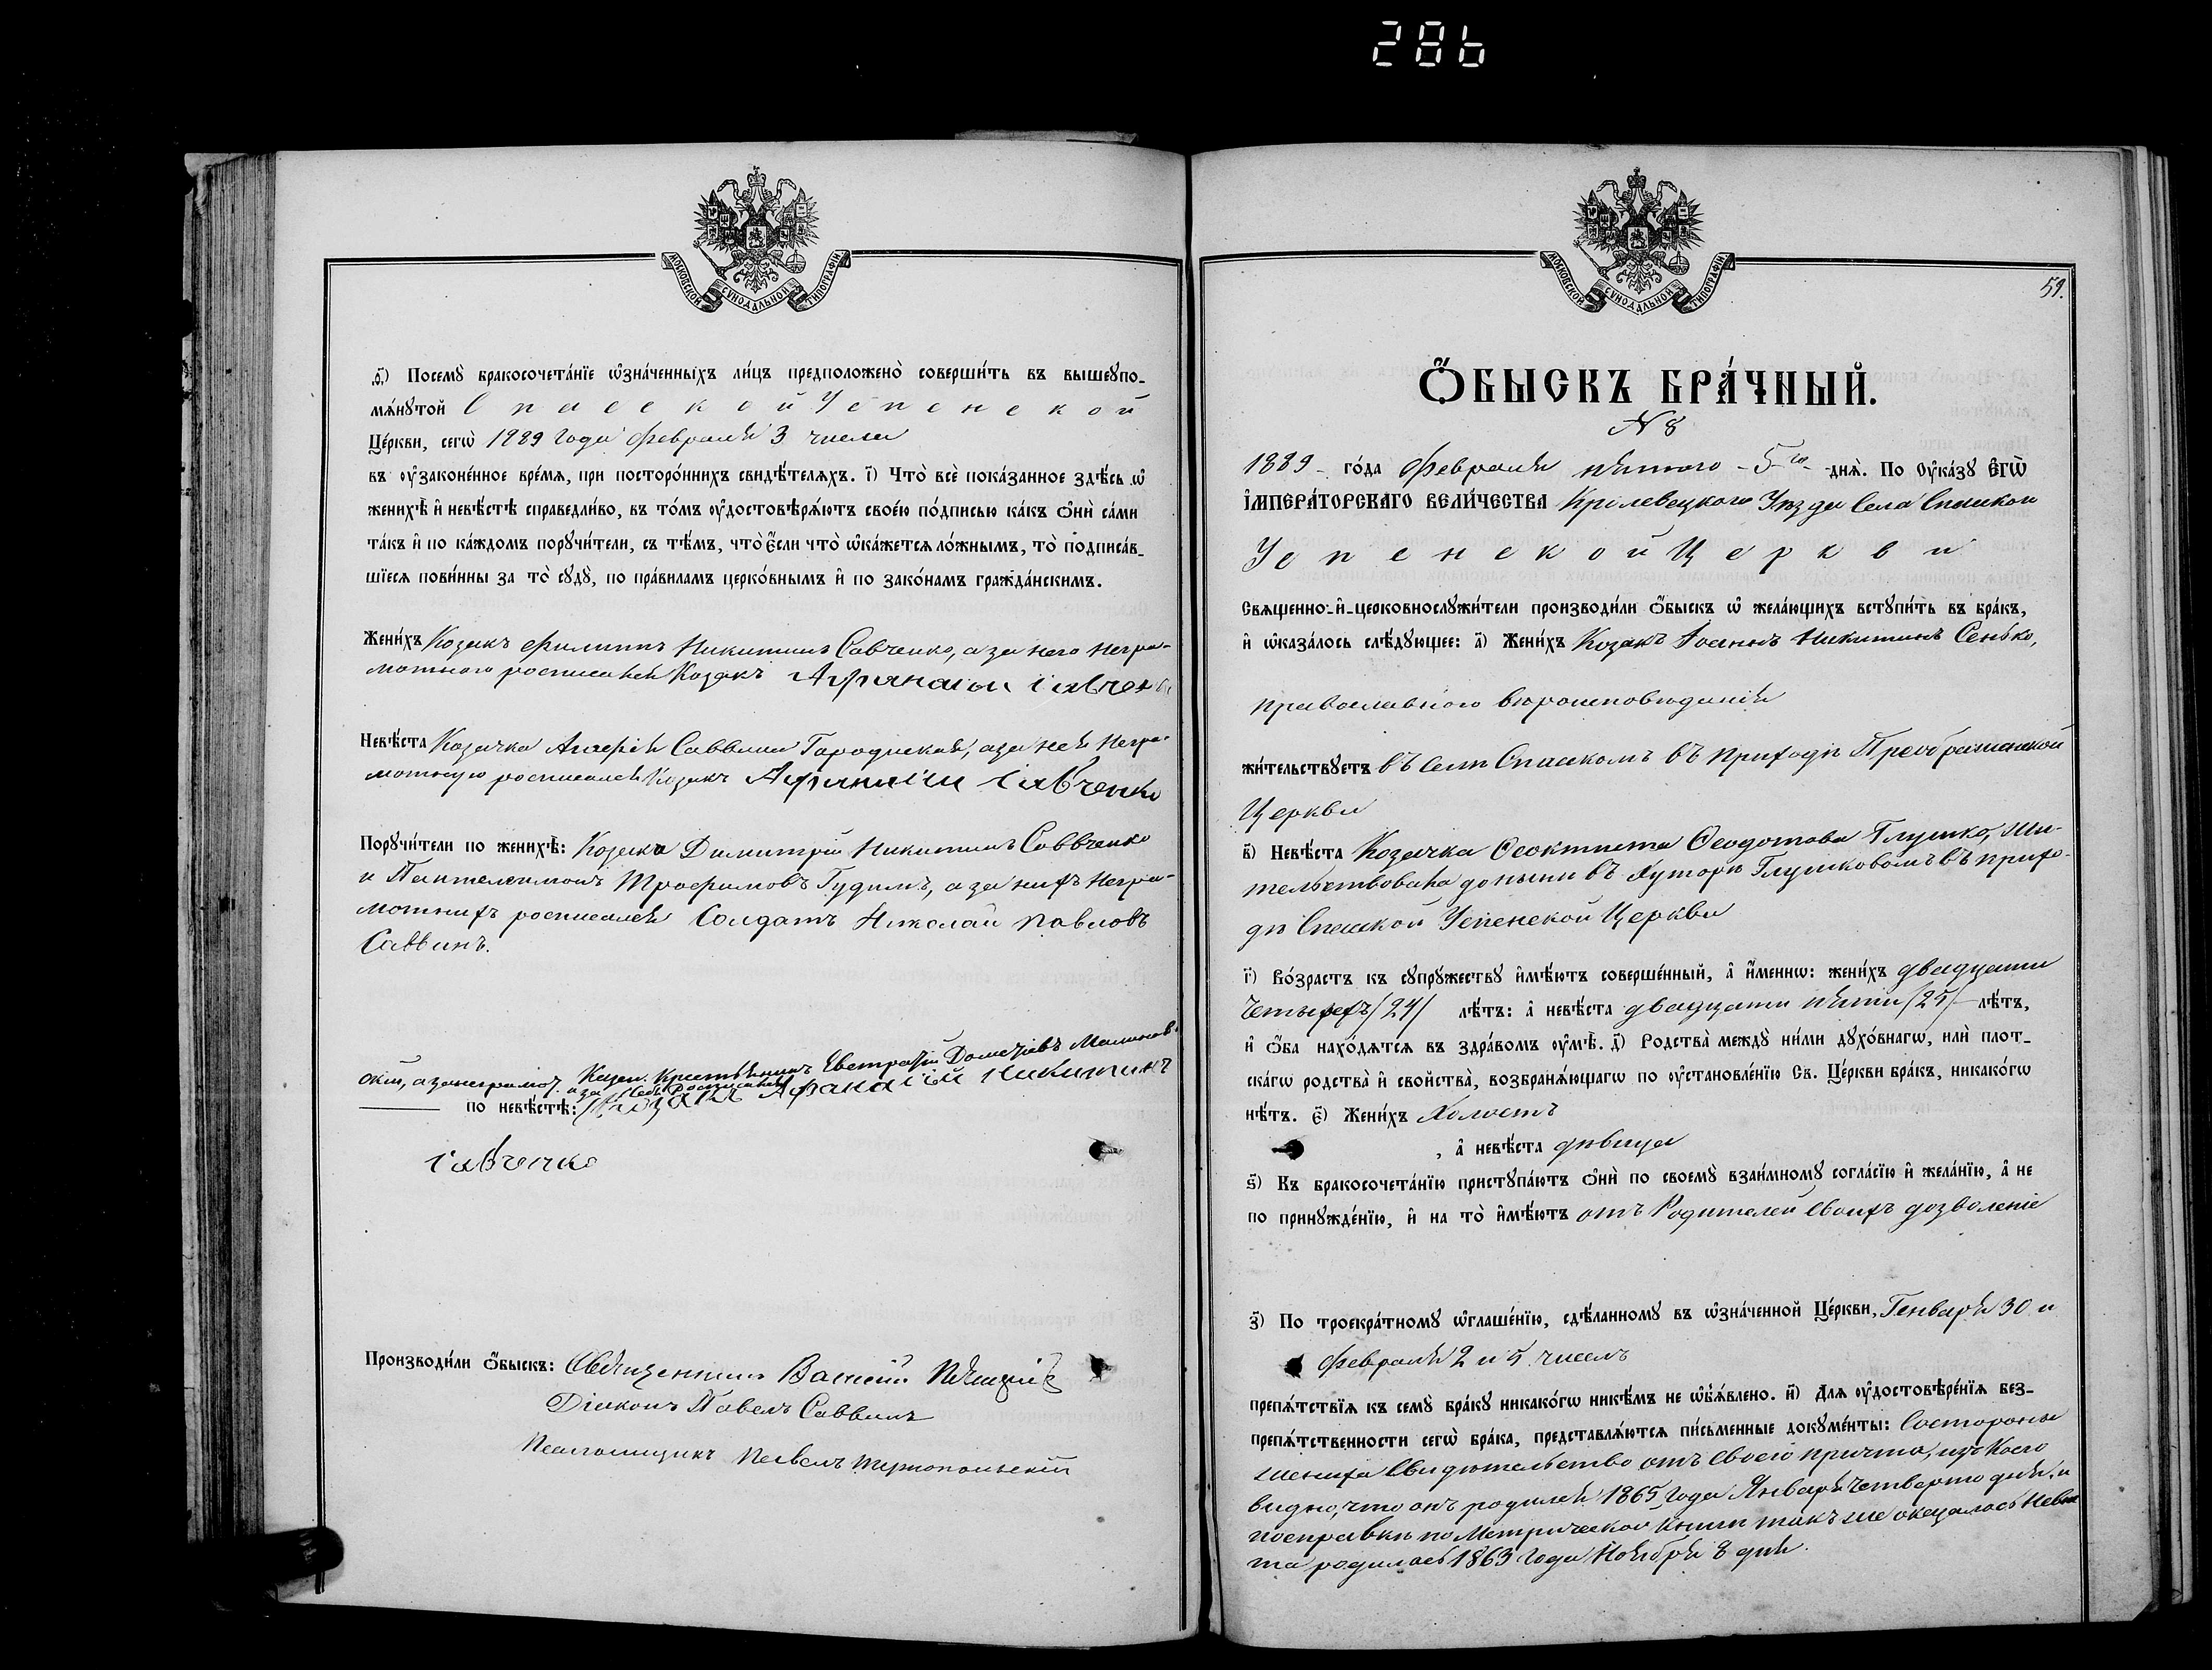 286
МОСКОВСКОЙ СѴНОДАЛЬНОЙ ТИПОГРАФІИ
ѳ҃) Посемꙋ бракосочета́нїе ѡ҆зна́ченныхъ ли́цъ предположено̀ соверши́ть въ вышеꙋпо-
мѧ́нꙋтой Спасской Успенской
Це́ркви, сегѡ̀ 1889 Года Февраля 3 числа
въ ᲂу҆законе́нное вре́мѧ, при посторо́ннихъ свидѣ́телѧхъ. і҃) Что̀ всѐ пока́занное здѣ́сь ѡ҆
женихѣ̀ и҆ невѣ́стѣ справедли́во, въ то́мъ ᲂу҆достовѣрѧ́ютъ свое́ю по́дписью ка́къ ѻ҆нѝ са́ми
та́къ и҆ по ка́ждомъ порꙋчи́тели, съ тѣ́мъ, что̀ є҆́сли что̀ ѡ҆ка́жетсѧ ло́жнымъ, то̀ подписа́в-
шїесѧ пови́нны за то̀ сꙋдꙋ̀, по пра́виламъ церко́внымъ и҆ по зако́намъ гражда́нскимъ.
Жени́хъ Козакъ Филиппъ Никитинъ Савченко, а за него негра-
мотного росписался Козакъ Афанасіи Савченко
Невѣ́ста Козачка Агафія Саввина Городиская, а за нея негра-
мотную росписался Козакъ Афанасіи Савченко
Порꙋчи́тели по женихѣ̀: Козаки Димитрій Никитинъ Саввченко
и Пантелеимонъ Трофимовъ Гудимъ, а за нихъ негра-
мотнихъ росписался Солдатъ Николай Павловъ
Саввинъ.
Казен. Крестьянинъ Евстратій Дометіевъ Малинов-
скій, а за неграмот.
а за себя росписался
по невѣ́стѣ: Козакъ Афанасій Никитинъ
Савченко
Производи́ли ѻ҆́быскъ: Священникъ Василій
Діаконъ Павелъ Саввинъ
Псаломщикъ Павелъ Тернопольскій
МОСКОВСКОЙ СѴНОДАЛЬНОЙ ТИПОГРАФІИ
59.
Ѻ҆́БЫСКЪ БРА́ЧНЫЙ.
№ 8
1889 го́да Февраля пятого - 5-го днѧ̀. По Оу҆ка́зꙋ Є҆ГѠ̀
І҆МПЕРА́ТОРСКАГО ВЕЛИ́ЧЕСТВА Кролевецкого Уѣзда Села Спаской
Успенской Церкви
Свѧщенно-и҆-церковнослꙋжи́тели производи́ли ѻ҆́быскъ ѡ҆ жела́ющихъ встꙋпи́ть въ бра́къ,
и҆ ѡ҆каза́лось слѣ́дꙋющее: а҃) Жени́хъ Козакъ Іоаннъ Никитинъ Сенько,
православного вѣроисповѣданія
жи́тельствꙋетъ въ Селѣ Спасскомъ въ приходѣ Преображенской
Церкви
в҃) Невѣ́ста Козачка Феоктиста Феодотова Глушко, жи-
тельствовала донынѣ въ Хуторѣ Глушковомъ въ прихо-
дѣ Спаской Успенской Церкви
г҃) Во́зрастъ къ сꙋпрꙋ́жествꙋ и҆мѣ́ютъ соверше́нный, а҆ и҆́меннѡ: жени́хъ двадцати
четырехъ /24/ лѣ́тъ: а҆ невѣ́ста двадцати пяти /25/ лѣ́тъ,
и҆ ѻ҆́ба нахо́дѧтсѧ въ здра́вомъ ᲂу҆мѣ̀. д҃) Родства̀ междꙋ̀ ни́ми дꙋхо́внагѡ, илѝ плот-
ска́гѡ родства̀ и҆ свойства̀, возбранѧ́ющагѡ по ᲂу҆становле́нїю Св. Це́ркви бра́къ, никако́гѡ
нѣ́тъ. є҃) Жени́хъ Холостъ
, а҆ невѣ́ста дѣвица
ѕ҃) Къ бракосочета́нїю пристꙋпа́ютъ ѻ҆нѝ по своемꙋ̀ взаи́мномꙋ согла́сїю и҆ жела́нїю, а҆ не
по принꙋжде́нїю, и҆ на то̀ и҆мѣ́ютъ отъ Родителей своихъ дозволеніе
з҃) По троекра́тномꙋ ѡ҆глаше́нїю, сдѣ́ланномꙋ въ ѡ҆зна́ченной Це́ркви, Генваря 30 и
Февраля 2 и 5 числъ
препѧ́тствїѧ къ семꙋ̀ бра́кꙋ никако́гѡ никѣ́мъ не ѡ҆б̾ѧ́влено. и҃) Длѧ ᲂу҆достовѣре́нїѧ без-
препѧ́тственности сегѡ̀ бра́ка, представлѧ́ютсѧ пи́сьменные докꙋме́нты: Состороны
жениха Свидѣтельство отъ своего причта, изъ коего
видно, что онъ родился 1865 Года Января четверто дня, и
посправкѣ по Метрической книги такъ же оказалось Невѣс
та родилась 1863 Года Ноября 8 дня.